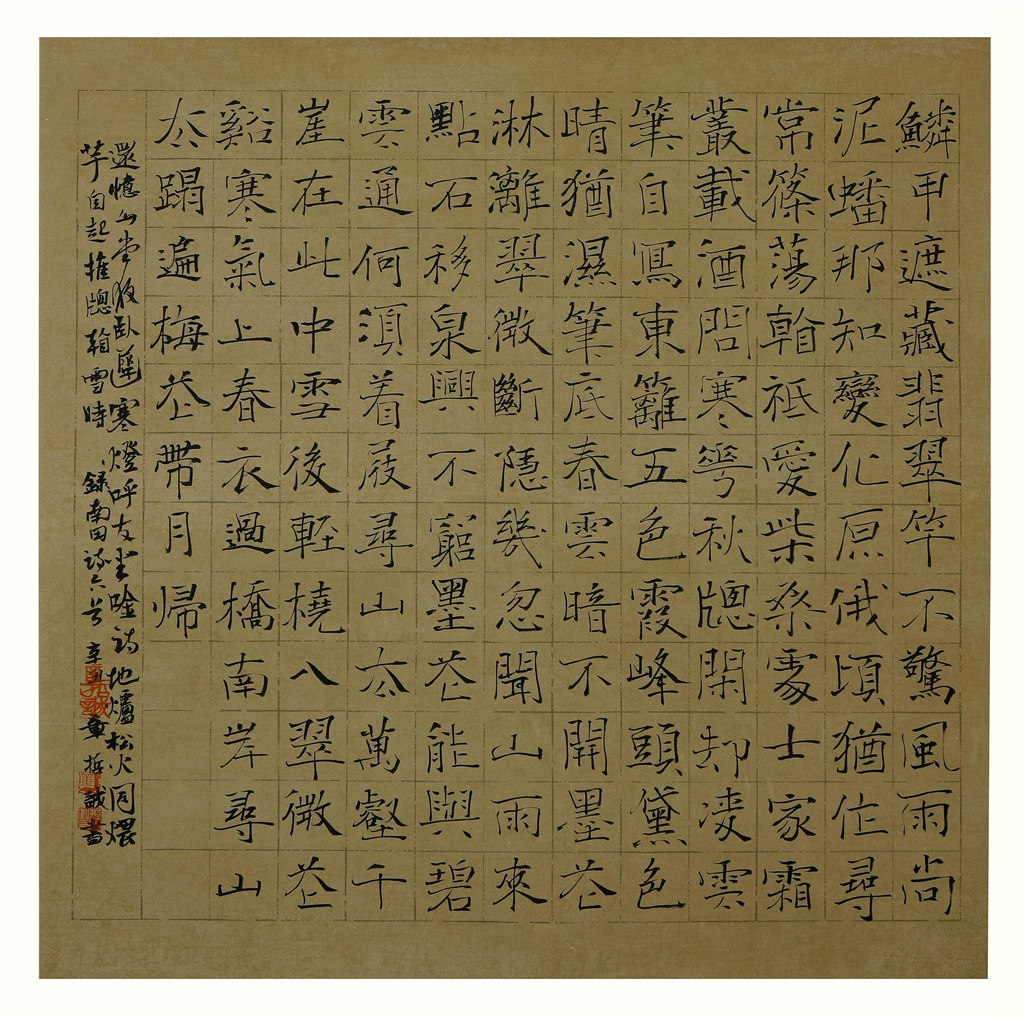 鱗甲遮藏翡翠竿不驚風雨尚
泥蟠那知變化原俄頃猶作尋
常篠蕩翰祗愛柴桑處士家霜
叢載酒問寒華秋牕閑却凌雲
筆自寫東籬五色霞峰頭黛色
晴猶濕筆底春雲暗不開墨花
淋灕翠微斷隱幾忽聞山雨來
點石移泉興不窮墨花能與碧
雲通何須着屐尋山去萬壑千
崖在此中雪後輕橈入翠微花
谿寒氣上春衣過橋南岸尋山
去蹋遍梅花帶月歸
還憶山堂夜臥遲寒燈呼友坐唫詩地爐松火同煨
芋自起推牕看雪時 錄南田詩六首 辛丑 章哲誠書